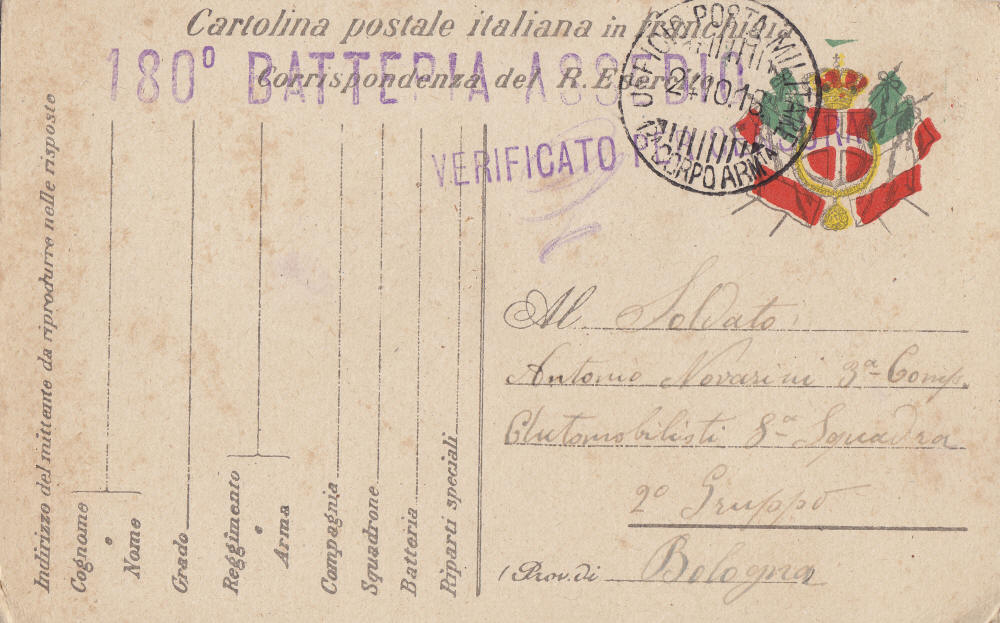 Cartolina postale italiana in franchigia
180° BATTERIA ASSEDIO
Corrispondenza del R. Esercito
UFFICIO POSTA MILITARE
13° CORPO ARMATA
VERIFICATO PER CENSURA
Indirizzo del mittente da riprodurre nelle risposte
Cognome e Nome
Grado
Reggimento e Arma
Compagnia
Squadrone
Batteria
Riparti speciali
Al Soldato
Antonio Novarini 3ª Comp.
Automobilisti 8ª Squadra
2° Gruppo
(Prov. di Bologna